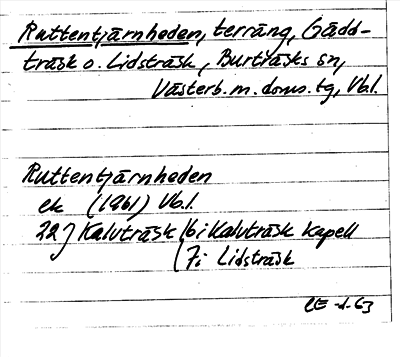 Ruttentjärnheden, terräng, Gädd-
träsk o. Lidsträsk, Burträsks sn,
Västerb. m. doms. tg, Vb.l.
Ruttentjärnheden
ek (1961) Vb.l.
22 J Kalvträsk 6 i Kalvträsk kapell
7 i Lidsträsk
CE -d- 63